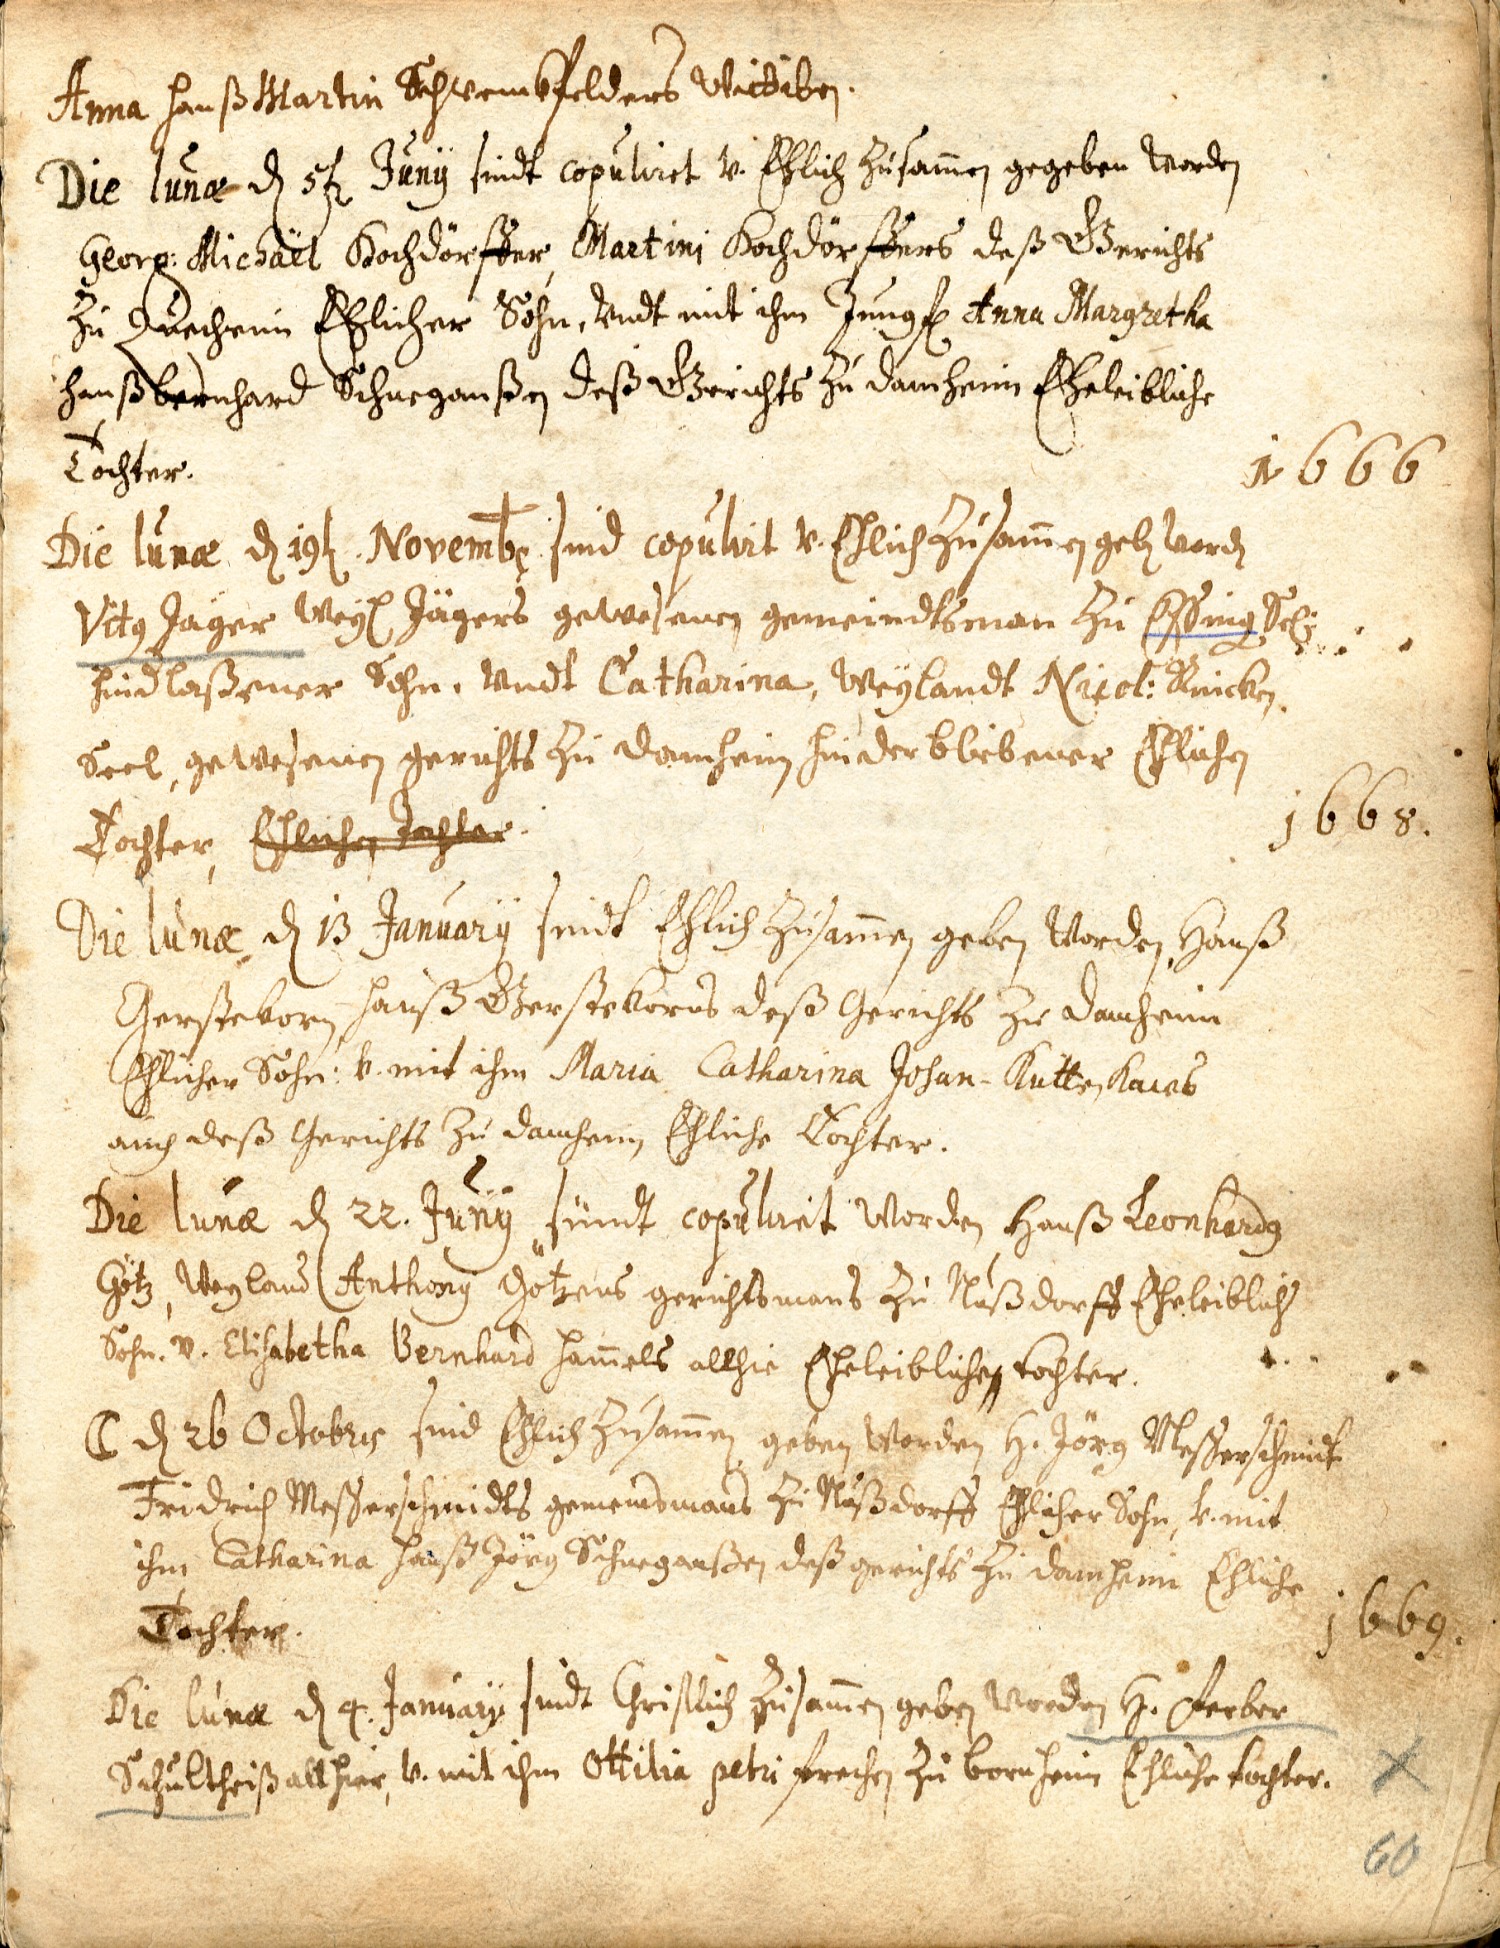 Anna Hanß Martin Schwembfelders Wittiben.
Die lunæ d 5t Junÿ sindt copulirt v. Ehlich zusam̄en gegeben worden
Georg: Michaël Kochdörffer, Martini Kochdörffers deß Gerichts
zu Quecheim Ehlicher Sohn, Vndt mit ihm Jungf Anna Margretha
Hanß bernhard Schneganßen deß Gerichts zu damheim Eheleibliche
Tochter.
1666
Die lunæ d 19t. Novembr. sind copulirt v. Ehlich zusam̄en gebn wordn
Vitg Jäger Weyl Jägers gewesenen gemeindtsman zu Essing Sel:
hindlaßener Sohn. Vndt Catharina, Weylandt Nicol: Knicken
Seel, gewesenen gerichts zu damheim hinderblibener Ehlichen
Tochter, Ehlichen Tochter.
1668.
Die lunæ d 13 Januarÿ sindt Ehlich zusam̄en geben worden, Hanß
Gerstekorn, Hanß Gerstekorns deß Gerichts zu damheim
Ehlicher Sohn: v. mit ihm Maria Catharina Johan-
auch deß Gerichts zu damheim Ehliche Tochter.
Die lunæ d 22. Junÿ sündt copulirt worden Hanß Leonhardg
Götz, Weyland Anthony Götzens gerichtsmans zu Nußdorff Eheleiblich
Sohn. v. Elisabetha Bernhard Ham̄els allhie Eheleiblichen tochter.
C d 26 Octobris sind Ehlich zusam̄en geben worden H. Jörg Messerschmidt
Fridrich Messerschmidts gemeindsmans zu Nußdorff Ehlicher Sohn, v. mit
ihm Catharina Hanß Jörg Schneganßen deß gerichts zu damheim Ehliche
Tochter.
1669.
Die lunæ d 4. Januarÿ sindt Christlich zusam̄en geben worden H. Ferber
Schultheiß allhier, v. mit ihm Ottilia petri frechen zu bornheim Ehliche tochter.
60